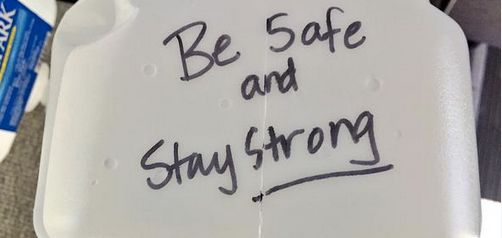 Be Safe
and
Stay Strong
ARK